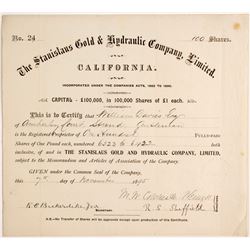 No. 24 100 Shares.
The Stanislaus Gold & Hydraulic Company, Limited.
CALIFORNIA.
INCORPORATED UNDER THE COMPANIES ACTS, 1862 TO 1890.
CAPITAL - £100,000, in 100,000 Shares of £1 each.
This is to Certify that William Davies Esq
of
is the Registered Proprietor of One Hundred FULLY-PAID
Shares of One Pound each, numbered 6323 to 6422
inclusive, in THE STANISLAUS GOLD AND HYDRAULIC COMPANY, LIMITED,
subject to the Memorandum and Articles of Association of the Company.
GIVEN under the Common Seal of the Company,
this 7th day of November 1895
N.B.-No Transfer of Shares will be approved except upon production of this Certificate.